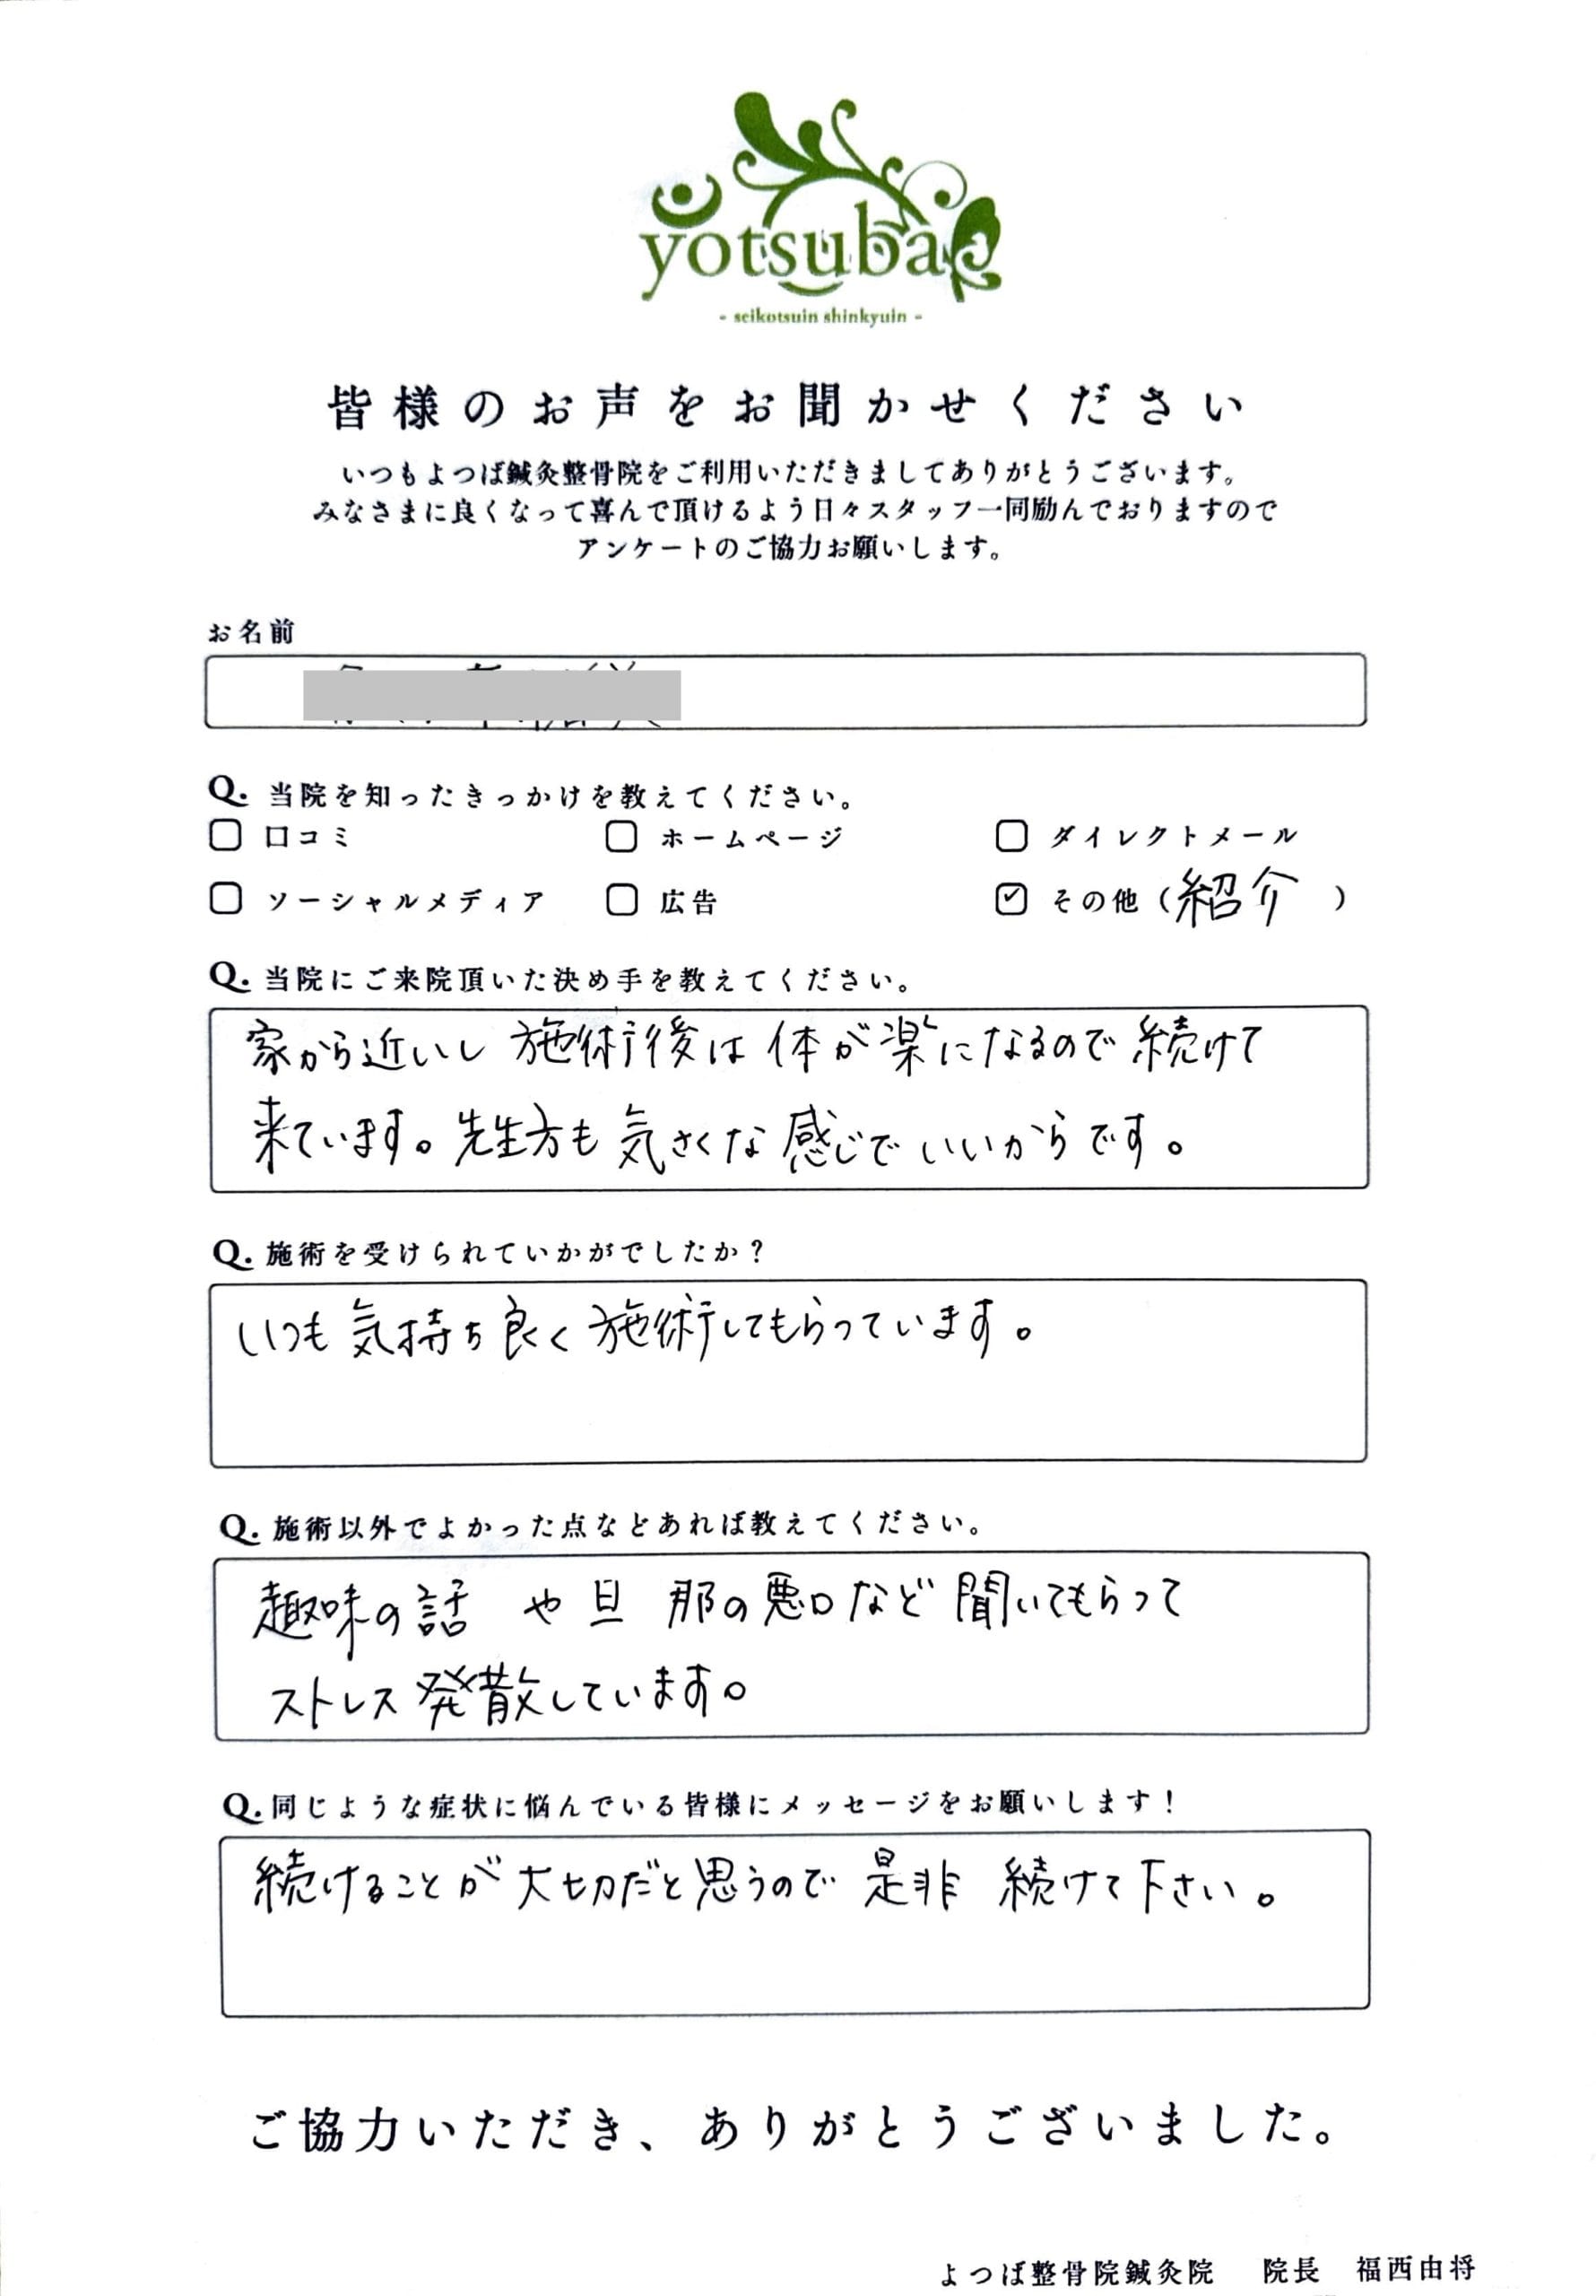 yotsuba
- seikotsuin shinkyuin -
皆様のお声をお聞かせください
いつもよつば鍼灸整骨院をご利用いただきましてありがとうございます。
みなさまに良くなって喜んで頂けるよう日々スタッフ一同励んでおりますので
アンケートのご協力お願いします。
お名前
Q. 当院を知ったきっかけを教えてください。
口コミ ホームページ ダイレクトメール
ソーシャルメディア 広告 その他(紹介 )
Q. 当院にご来院頂いた決め手を教えてください。
家から近いし 施術後は 体が楽になるので 続けて
来ています。先生方も 気さくな 感じで いいからです。
Q. 施術を受けられていかがでしたか?
いつも 気持ち良く 施術してもらっています。
Q. 施術以外でよかった点などあれば教えてください。
趣味の話 や旦那の悪口など 聞いてもらって
ストレス発散しています。
Q. 同じような症状に悩んでいる皆様にメッセージをお願いします!
続けることが 大切だと思うので 是非 続けて下さい。
ご協力いただき、ありがとうございました。
よつば整骨院鍼灸院 院長 福西由将